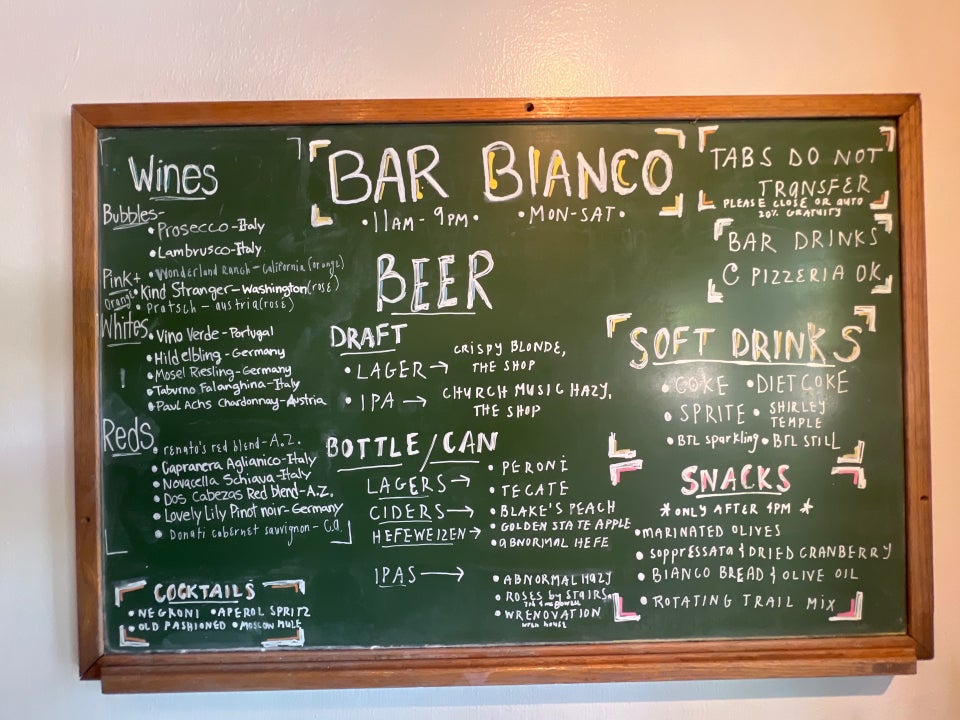 BAR BIANCO
• 11AM - 9PM • • MON-SAT •
Wines
Bubbles-
• Prosecco-Italy
• Lambrusco-Italy
Pink + Orange
• Wonderland Ranch - California (orange)
• Kind Stranger - Washington (rosé)
• Pratsch - austria (rosé)
Whites
• Vino Verde - Portugal
• Hild elbling - Germany
• Mosel Riesling - Germany
• Taburno Falanghina - Italy
• Paul Achs Chardonnay - Austria
Reds
• renato's red blend - A.Z.
• Capranera Aglianico - Italy
• Novacella Schiava - Italy
• Dos Cabezas Red blend - A.Z.
• Lovely Lily Pinot noir - Germany
• Donati cabernet sauvignon - C.a.
COCKTAILS
• NEGRONI • APEROL SPRITZ
• OLD FASHIONED • MOSCOW MULE
BEER
DRAFT
• LAGER → CRISPY BLONDE,
THE SHOP
• IPA → CHURCH MUSIC HAZY,
THE SHOP
BOTTLE/CAN
LAGERS → • PERONI
• TECATE
CIDERS → • BLAKE'S PEACH
• GOLDEN STATE APPLE
HEFEWEIZEN → • ABNORMAL HEFE
IPAS → • ABNORMAL HAZY
• ROSES by STAIRS
• WRENOVATION
WREN HOUSE
TABS DO NOT
TRANSFER
PLEASE CLOSE OR AUTO
20% GRATUITY
BAR DRINKS
C PIZZERIA OK
SOFT DRINKS
• COKE • DIET COKE
• SPRITE • SHIRLEY
TEMPLE
• BTL sparkling • BTL STILL
SNACKS
* ONLY AFTER 4PM *
• MARINATED OLIVES
• SOPPRESSATA & DRIED CRANBERRY
• BIANCO BREAD & OLIVE OIL
• ROTATING TRAIL MIX